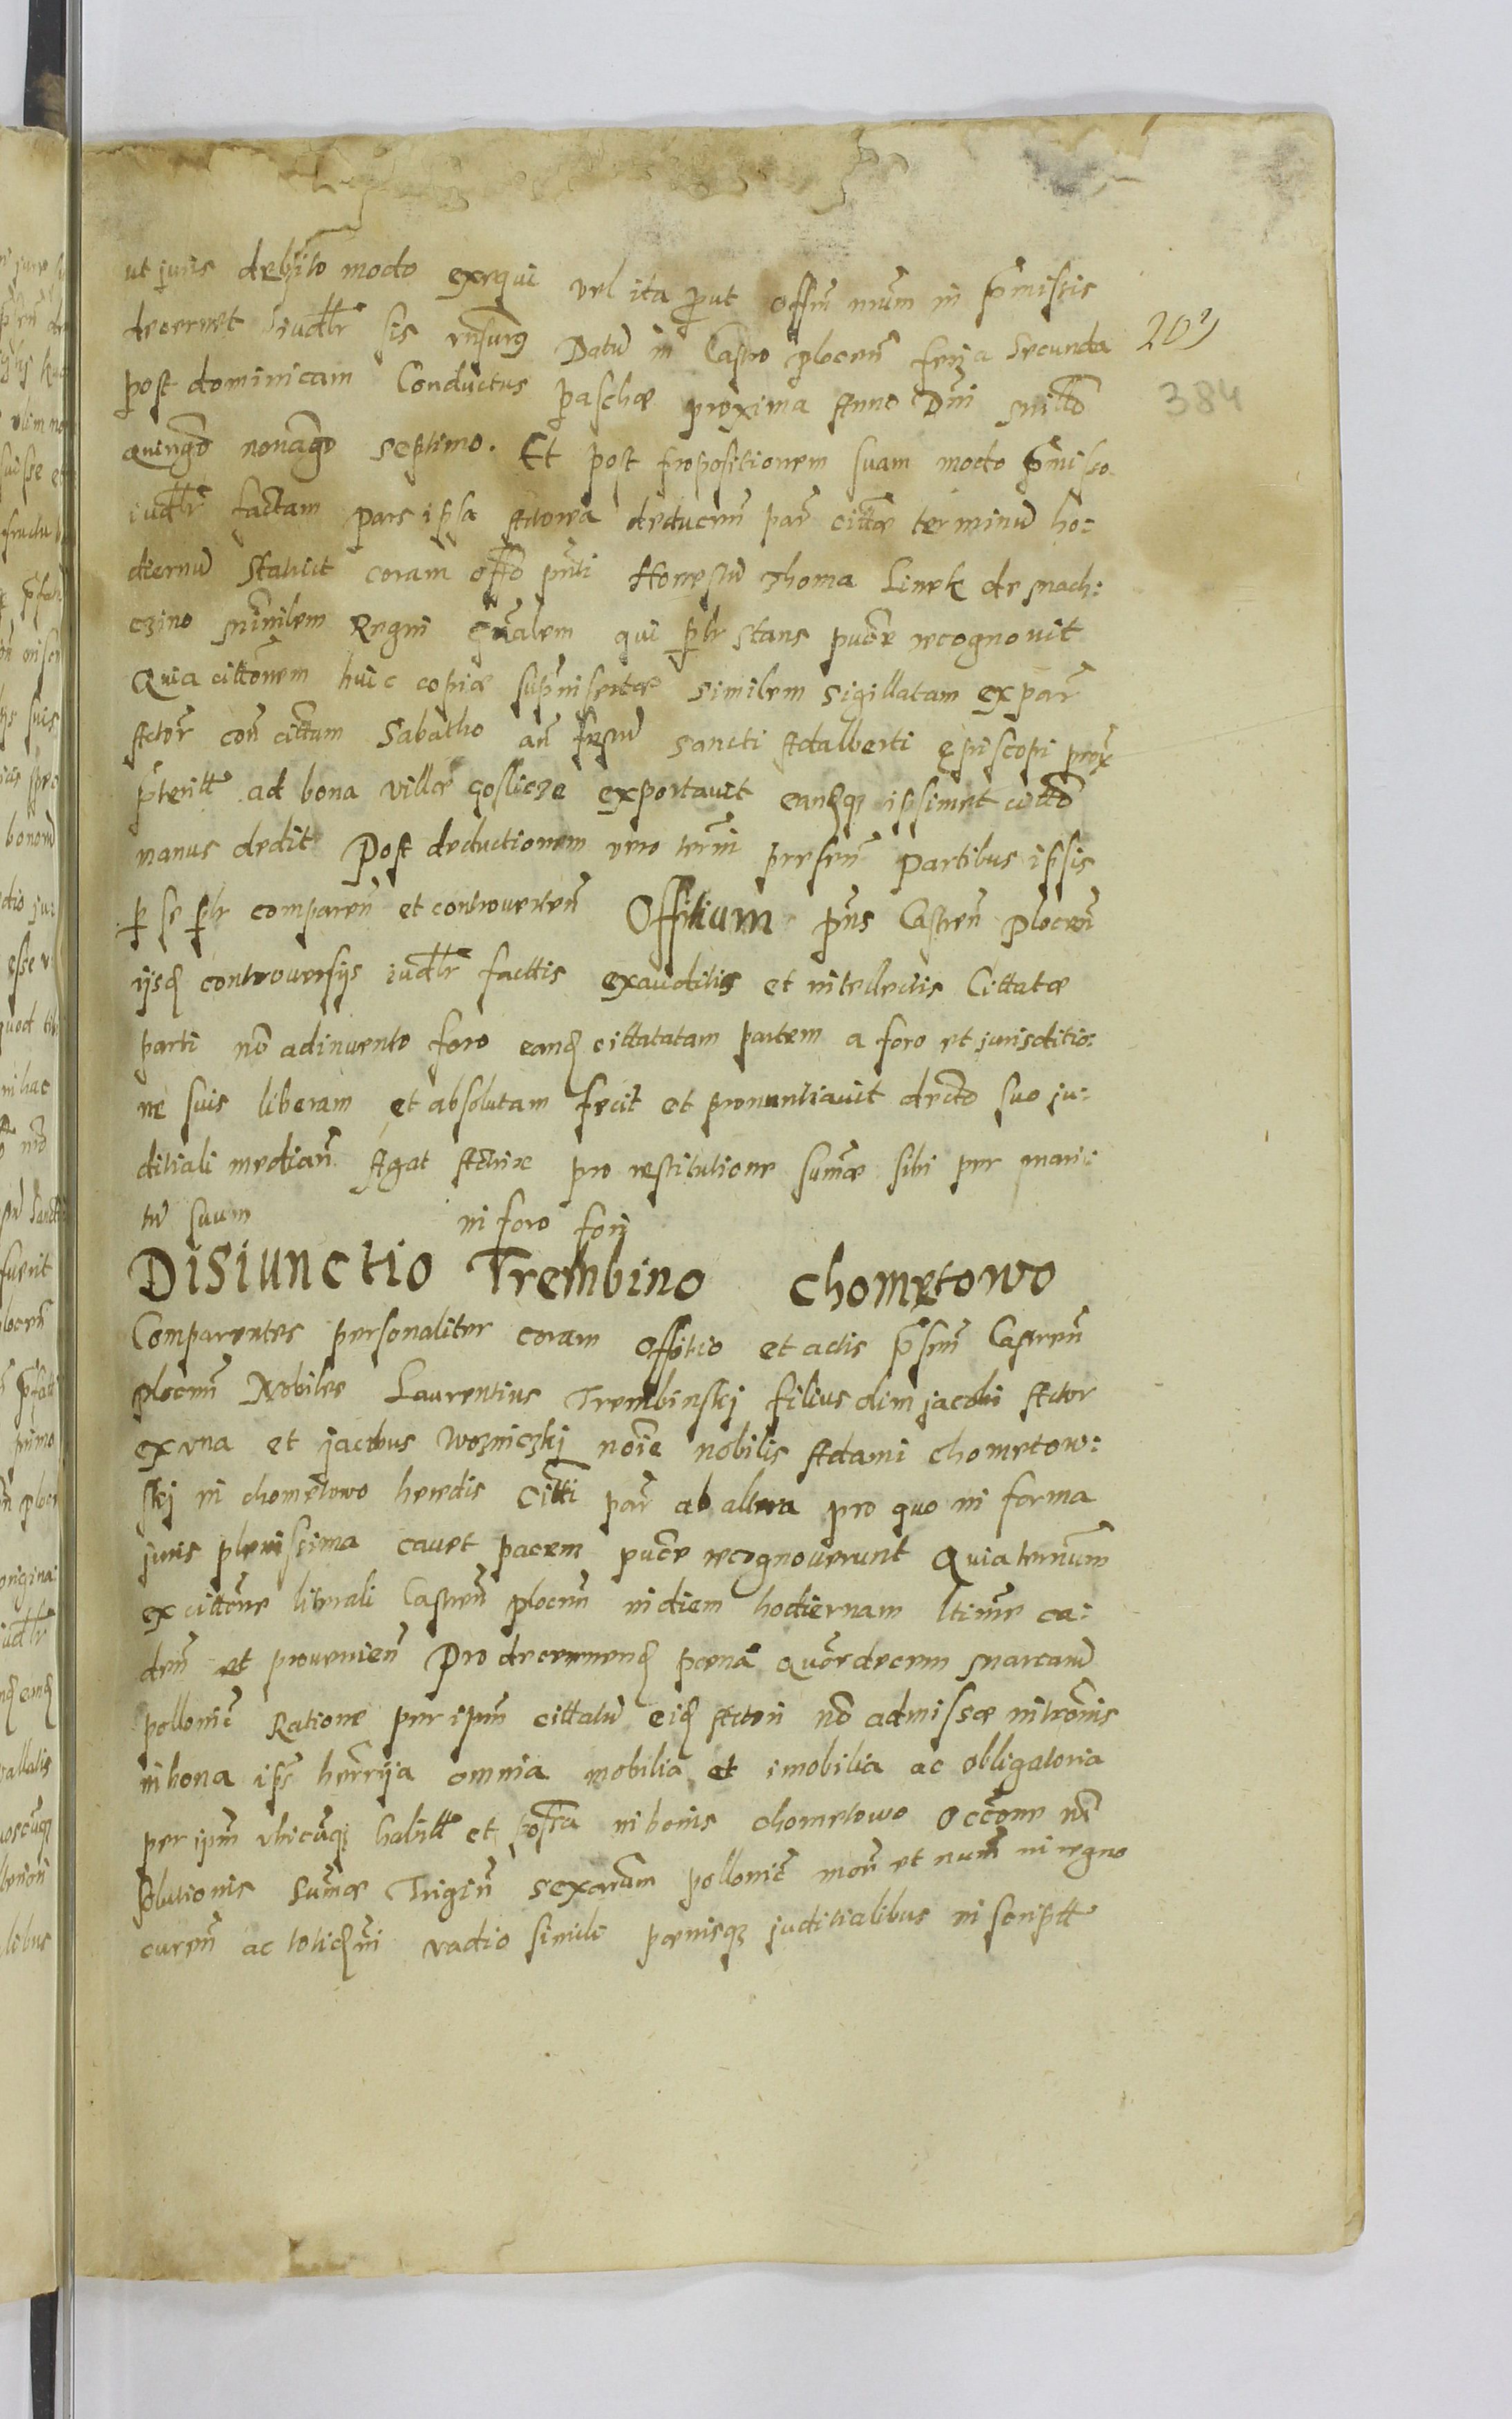 ut juris debito modo exequi vel ita put offm nrum in pmissis
decernet iudlr sis rnsurq Datu in Castro plocen feria Secunda
post dominicam Conductus paschæ proxima Anno Dni millo
quingo nonago septimo. Et post propositionem suam modo pmisso
iudlr factam pars ipsa Actorea deducen par cittæ terminu ho:
diernu statuit coram offo pnti Honestu Thoma Linek de mach:
czino minilem Regni gnalem qui plr stans pucre recognovit
Quia cittonem huic copiæ supinsertæ similem sigillatam ex par
Actor con cittum Sabatho an festu sancti Adalberti episcopi prox
pterit ad bona villæ goslicze exportavit eandq ipsimet citto
manus dedit Post deductionem vero termi presen Partibus ipsis
p se plr comparen et controverten Offitium pns Castren plocen
ijsd controversijs iudlr factis exauditis et intellectis Cittatæ
parti no adinvento foro eand cittatatam partem a foro et jurisditio:
ne suis liberam et absolutam fecit et pronuntiavit decto suo ju:
ditiali median Agat Actrix pro restitutione sumæ sibi per mari:
tu suum in foro fori
Disiunctio Trembino Chometowo
Comparentes personaliter coram offitio et actis psen Castren
plocen Nobiles Laurentius Trembinskj filius olim jacobi Actor
ex una et jacobus Wozniczkj noie nobilis Adami chometow:
skj in chometowo heredis Citti par ab altera pro quo in forma
juris plenissima cavet pacem pucre recognoverunt Quia ternum
ex cittone literali Castren plocen in diem hodiernam ltime ca:
den et provenien Pro decernend pœna quordecem marcaru
pollonic Ratione per ipm cittatu eid Actori no admissæ intromis
in bona ips herrija omnia mobilia et imobilia ac obligatoria
per ipm ubicuq habitt et possa in bonis chometowo occone no
solutionis Sumæ Trigin sexarum pollonic mon et num in regno
curen ac totidem vadio simili pœnisq juditialibus in scriptt
201
384